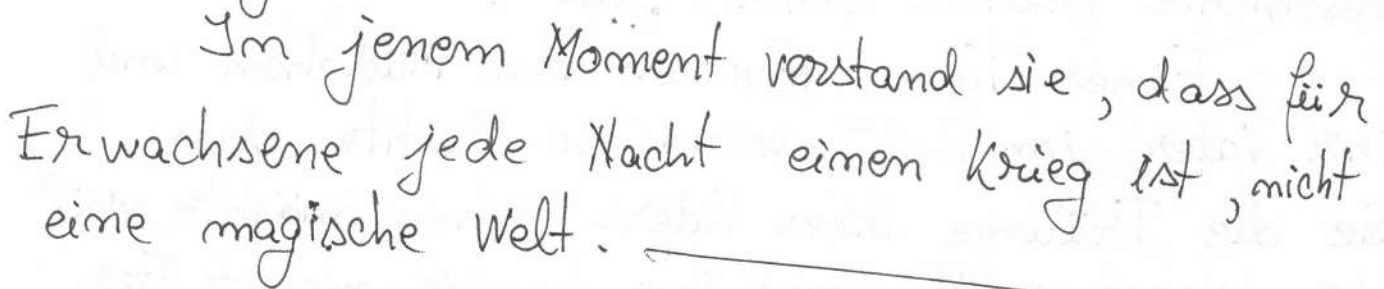 In jenem Moment verstand sie, dass für
Erwachsene jede Nacht einen Krieg ist, nicht
eine magische Welt.